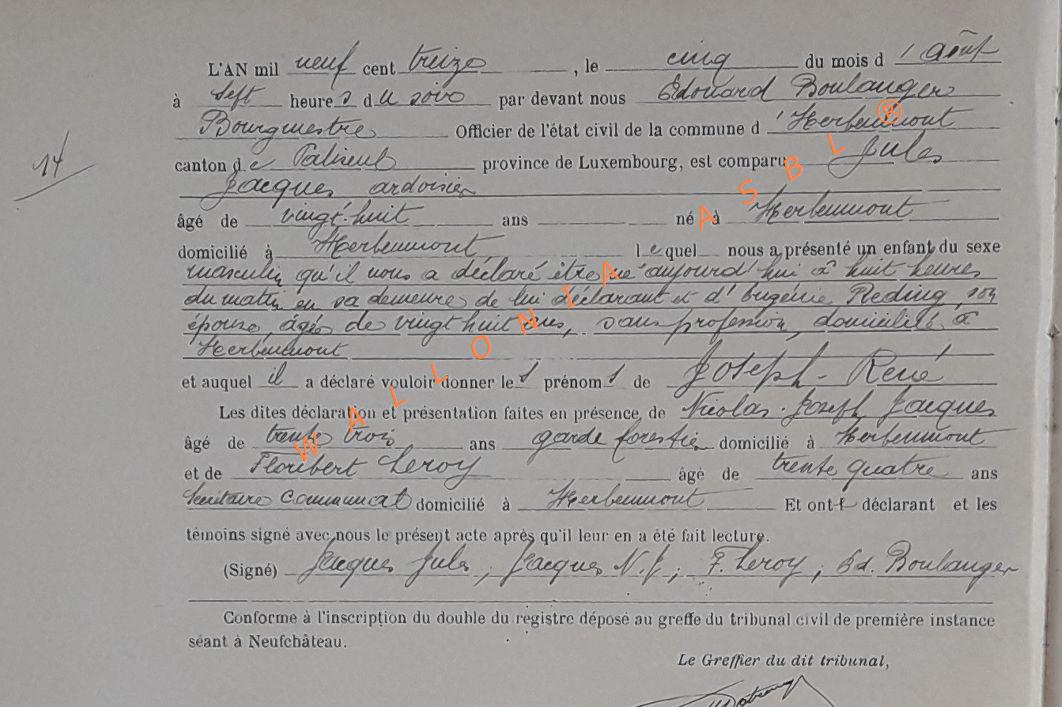 L'AN mil neuf cent treize, le cinq du mois d'Août
à sept heures du soir par devant nous Edouard Boulanger
Bourgmestre Officier de l'état civil de la commune d'Herbeumont
14
canton de Paliseul province de Luxembourg, est comparu Jules
Jacques ardoisier
âgé de vingt-huit ans né à Herbeumont
domicilié à Herbeumont lequel nous a présenté un enfant du sexe
masculin qu'il nous a déclaré être né aujourd'hui à huit heures
du matin en sa demeure de lui déclarant et d'Eugénie Reding, son
épouse, âgée de vingt huit ans, sans profession, domiciliée à
Herbeumont
et auquel il a déclaré vouloir donner les prénoms de Joseph-René
Les dites déclaration et présentation faites en présence de Nicolas-Joseph Jacques
âgé de trente trois ans garde forestier domicilié à Herbeumont
et de Floribert Leroy âgé de trente quatre ans
Secrétaire Communal domicilié à Herbeumont Et ont déclarant et les
témoins signé avec nous le présent acte après qu'il leur en a été fait lecture.
(Signé) Jacques Jules, Jacques N.J., F. Leroy, Ed. Boulanger
Conforme à l'inscription du double du registre déposé au greffe du tribunal civil de première instance
séant à Neufchâteau.
Le Greffier du dit tribunal,
WALLONIA ASBL ®